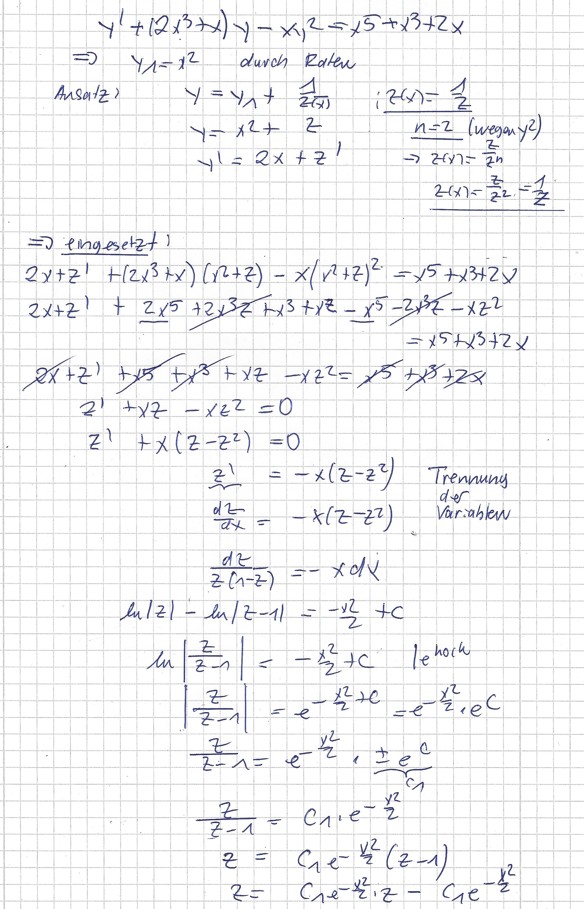 y' + (2x³+x) y − xy² = x5 + x3 + 2x
⇒ y1 = x² durch Raten
Ansatz: y = y1 + 1/z(x) ; z(x) = 1/z
y = x² + z n=2 (wegen y²)
y' = 2x + z' → z(x) = z/zn
z(x) = z/z² = 1/z
⇒ eingesetzt:
2x+z' + (2x³+x)(x²+z) − x(x²+z)² = x5+x3+2x
2x+z' + 2x5 + 2x³z + x3 + xz − x5 − 2x³z − xz²
= x5+x3+2x
2x+z' + x5 + x3 + xz − xz² = x5 + x3 + 2x
z' + xz − xz² = 0
z' + x(z−z²) = 0
z' = −x(z−z²) Trennung der Variablen
dz/dx = −x(z−z²)
dz/z(1−z) = − x dx
ln|z| − ln|z−1| = −x²/2 + c
ln|z/z−1| = −x²/2 + c |e hoch
|z/z−1| = e^−x²/2+c = e^−x²/2 · e^c
z/z−1 = e^−x²/2 · ± e^c
c1
z/z−1 = C1 · e^−x²/2
z = C1 e^−x²/2 (z−1)
z = C1 e^−x²/2 · z − C1 e^−x²/2